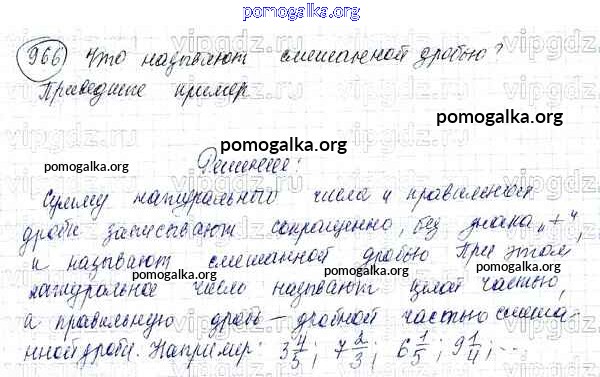 pomogalka.org
966 Что называют смешанной дробью?
Приведите пример
pomogalka.org
pomogalka.org pomogalka.org
Решение:
Сумму натурального числа и правильной
дроби записывают сокращенно, без знака „+“,
и называют смешанной дробью При этом
pomogalka.org
натуральное число называют целой частью,
а правильную дробь – дробной частью смеша-
нной дроби. Например: 3 4/5; 7 2/3; 6 1/5; 9 1/4; ...
pomogalka.org